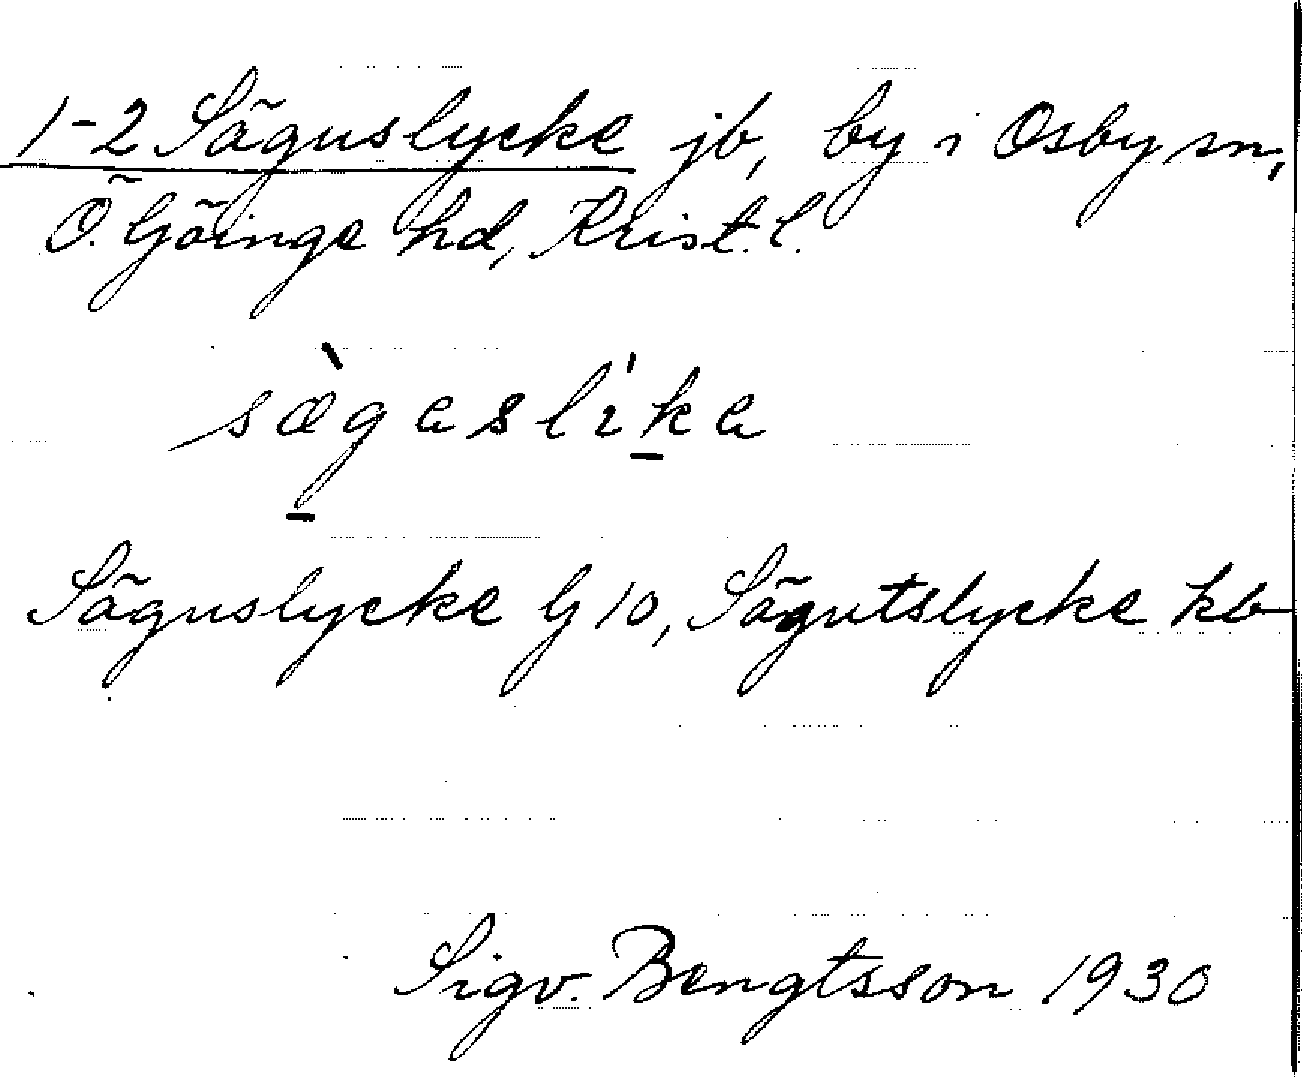 1-2 Säguslycke jb, by i Osby sn,
Ö. Göinge hd, Krist. l.
sæ̀gaslíka
Säguslycke G 10, Sägutslycke kb
Sigv. Bengtsson 1930